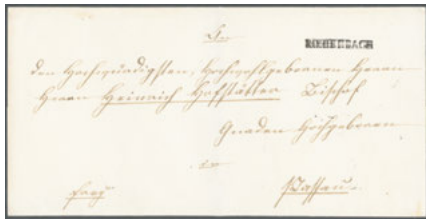 An
ROEHRNBACH
den Hochwürdigsten, Hochwohlgebornen Herrn
Herrn Heinrich Hofstätter Bischof
Gnaden Hochgeboren
in
Passau.
frey